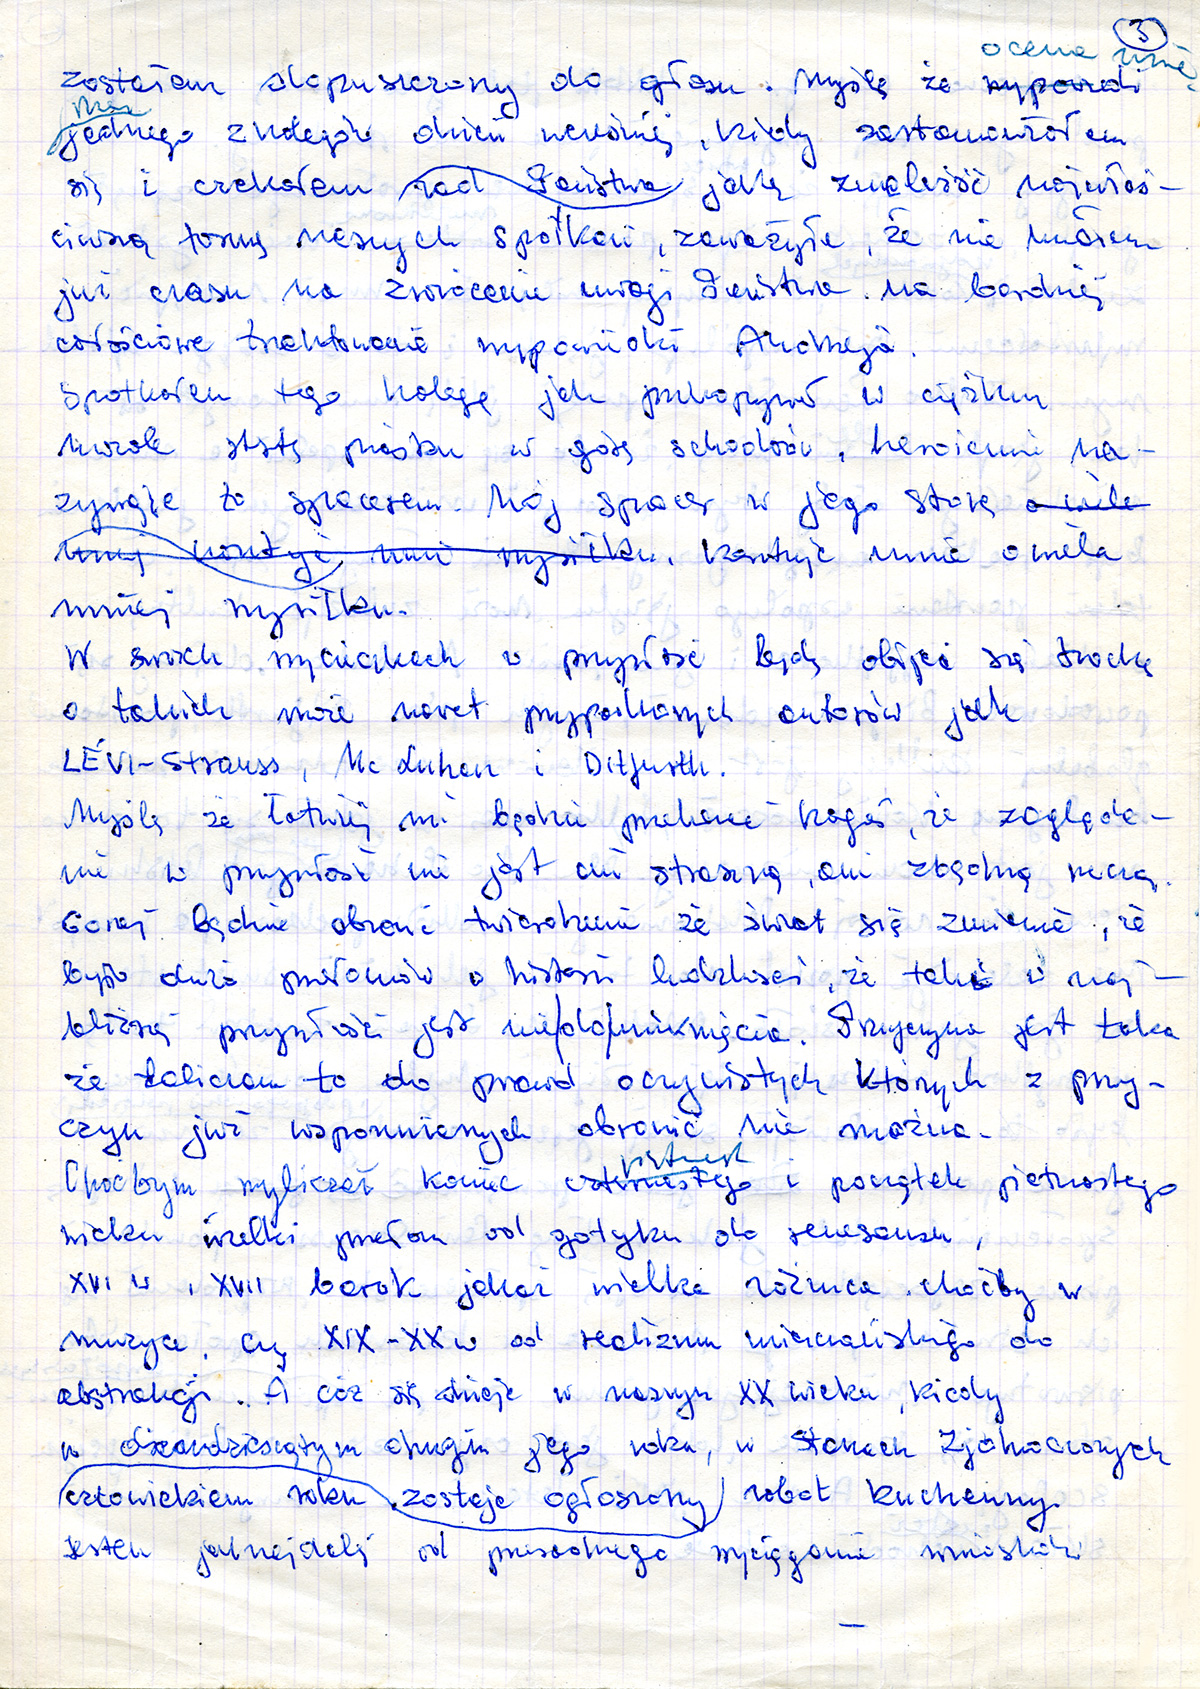 3
ocena
zostałem dopuszczony do głosu. Myślę że wypowiedź
jednego z kolegów dzień wcześniej, kiedy zastanawiałem
się i czekałem rad Państwa jaką znaleźć najwłaś-
ciwszą formę naszych spotkań, zaważyła, że nie miałem
już czasu na zwrócenie uwagi Państwa na bardziej
całościowe traktowanie wypowiedzi Andrzeja.
Spotkałem tego kolegę jak przekopywał w ciężkim
mozole stertę piasku w górę schodów, heroicznie na-
zywając to spacerem. Mój spacer w jego stronę o wiele
mniej kosztuje mnie wysiłku. kosztuje mnie o wiele
mniej wysiłku.
W swoich wycieczkach w przyszłość będę obijać się trochę
o takich może nawet przypadkowych autorów jak
LÉVI-Strauss, Mc Luhan i Ditfurth.
Myślę że łatwiej mi będzie przekonać kogoś, że zagląda-
nie w przyszłość nie jest ani straszną, ani zbędną rzeczą.
Gorzej będzie obronić twierdzenie że świat się zmienia, że
było dużo przełomów w historii ludzkości, że taki w naj-
bliższej przyszłości jest nie/do/uniknięcia. Przyczyna jest taka
że zaliczam to do prawd oczywistych których z przy-
czyn już wspomnianych obronić nie można.
Choćbym wyliczał koniec czternastego i początek piętnastego
wieku wielki przełom od gotyku do renesansu,
XVI w i XVII barok jakaż wielka różnica choćby w
muzyce, czy XIX-XX w od realizmu mieszczańskiego do
abstrakcji. A cóż się dzieje w naszym XX wieku, kiedy
w osiemdziesiątym drugim jego roku, w Stanach Zjednoczonych
człowiekiem roku zostaje ogłoszony robot kuchenny.
Jestem jak najdalej od przesadnego wyciągania wniosków